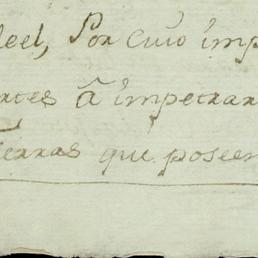 leel, Por cuio imp
rtes â impetrar
tierras que poseen